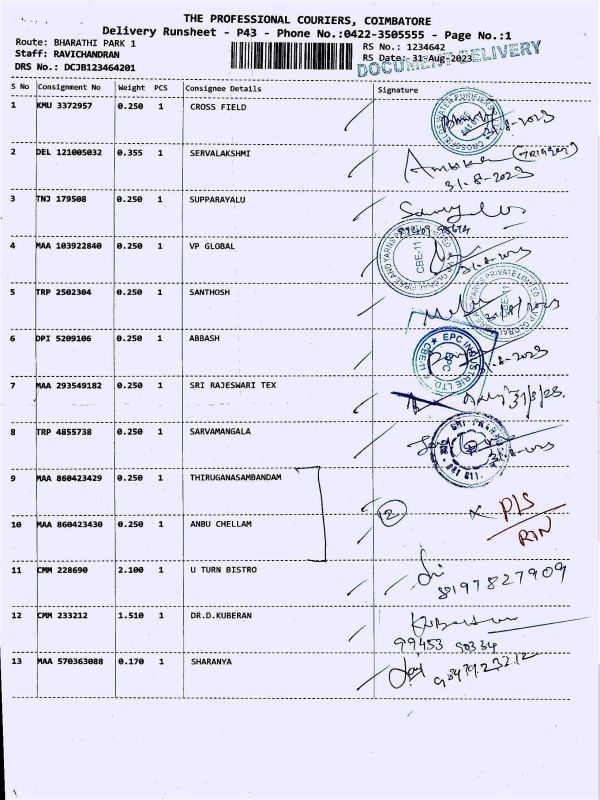 THE PROFESSIONAL COURIERS, COIMBATORE
Delivery Runsheet - P43 - Phone No.:0422-3505555 - Page No.:1
Route: BHARATHI PARK 1 RS No.: 1234642
Staff: RAVICHANDRAN RS Date: 31-Aug-2023
DRS No.: DCJB123464201
DOCUMENT DELIVERY
S No Consignment No Weight PCS Consignee Details Signature
1 KMU 3372957 0.250 1 CROSS FIELD
31-8-2023
2 DEL 121005032 0.355 1 SERVALAKSHMI
31-8-2023
3 TNJ 179508 0.250 1 SUPPARAYALU
4 MAA 103922840 0.250 1 VP GLOBAL
CBE-11
31-8-2023
5 TRP 2502304 0.250 1 SANTHOSH
CBE-11
31/8/2023
6 DPI 5209106 0.250 1 ABBASH
EPC INDUSTRIE LTD
CBE-11
7 MAA 293549182 0.250 1 SRI RAJESWARI TEX
31/8/23
8 TRP 4855738 0.250 1 SARVAMANGALA
9 MAA 860423429 0.250 1 THIRUGANASAMBANDAM
2 P/S
RTN
10 MAA 860423430 0.250 1 ANBU CHELLAM
11 CMM 228690 2.100 1 U TURN BISTRO
8197827909
12 CMM 233212 1.510 1 DR.D.KUBERAN
99453 90334
13 MAA 570363088 0.170 1 SHARANYA